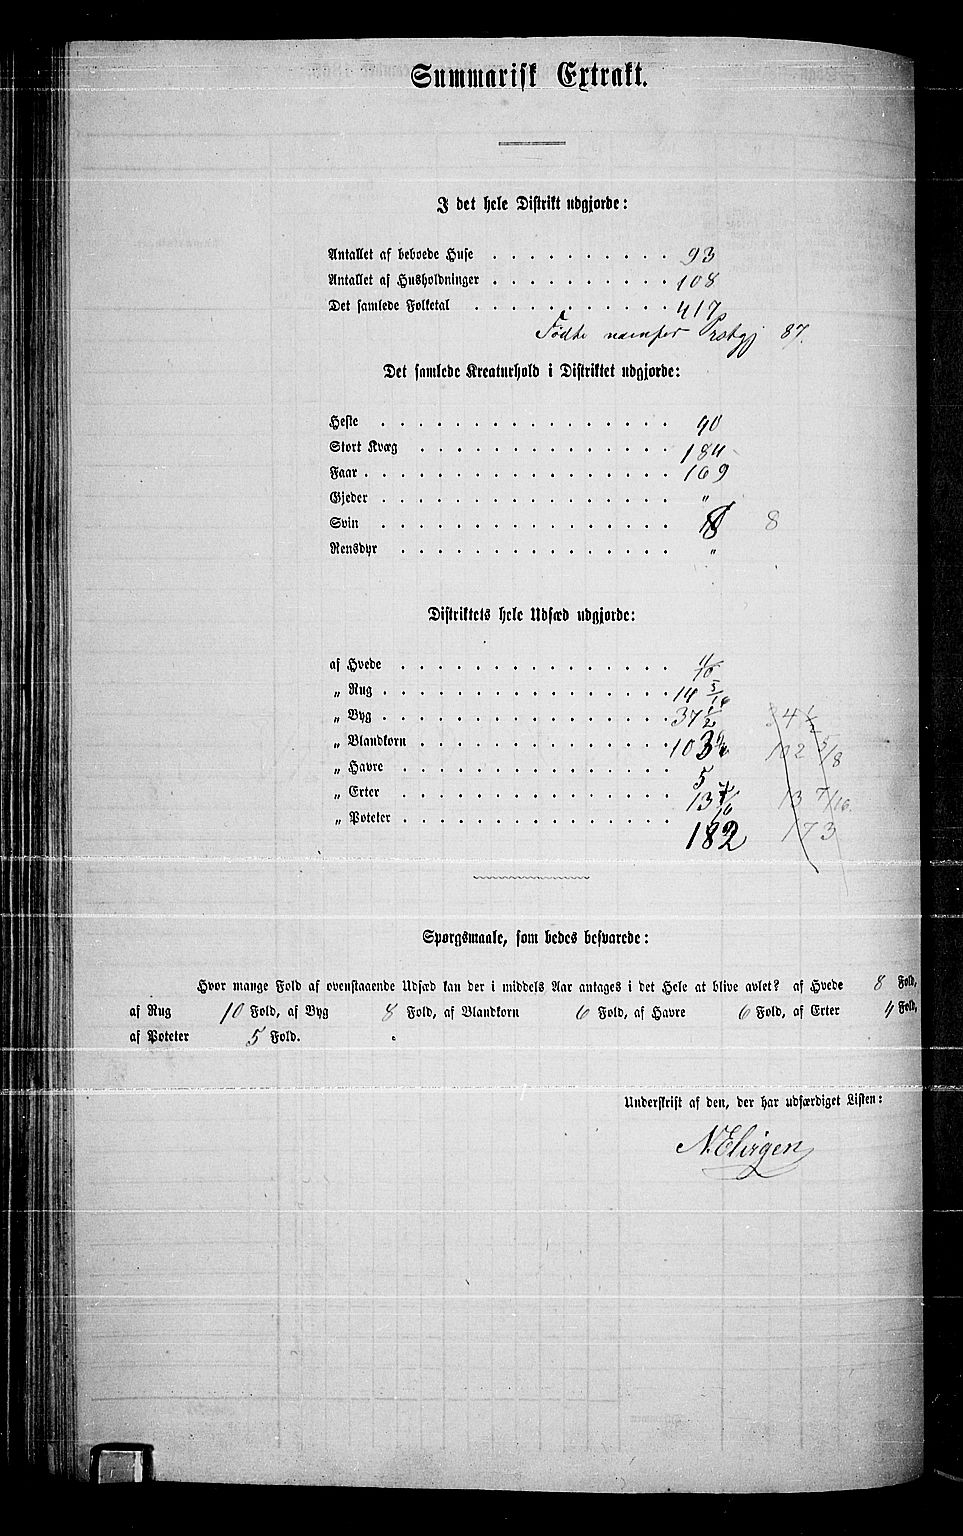 Summarisk Extrakt.
I det hele Distrikt udgjorde:
Antallet af beboede Huse . . . . . . . . . . 93
Antallet af Husholdninger . . . . . . . . . . 108
Det samlede Folketal . . . . . . . . . . . 417
Fødte Prstgj 87.
Det samlede Kreaturhold i Distriktet udgjorde:
Heste . . . . . . . . . . . . . . . . 40
Stort Kvæg . . . . . . . . . . . . . . 184
Faar . . . . . . . . . . . . . . . . . 169
Gjeder . . . . . . . . . . . . . . . . "
Svin . . . . . . . . . . . . . . . . 8 8
Rensdyr . . . . . . . . . . . . . . . "
Distriktets hele Udsæd udgjorde:
af Hvede . . . . . . . . . . . . . . .
„ Rug . . . . . . . . . . . . . . . . 14 3/16
„ Byg . . . . . . . . . . . . . . . . 37 1/2 34 1/2
„ Blandkorn . . . . . . . . . . . . . . 103 102 5/8
„ Havre . . . . . . . . . . . . . . . 5
„ Erter . . . . . . . . . . . . . . . 13 7/16 13 7/16.
„ Poteter . . . . . . . . . . . . . . . 182 173
Spørgsmaale, som bedes besvarede:
Hvor mange Fold af ovenstaaende Udsæd kan der i middels Aar antages i det Hele at blive avlet? af Hvede 8 Fold,
af Rug 10 Fold, af Byg 8 Fold, af Blandkorn 6 Fold, af Havre 6 Fold, af Erter 4 Fold,
af Poteter 5 Fold.
Underskrift af den, der har udfærdiget Listen:
N. Elvigen